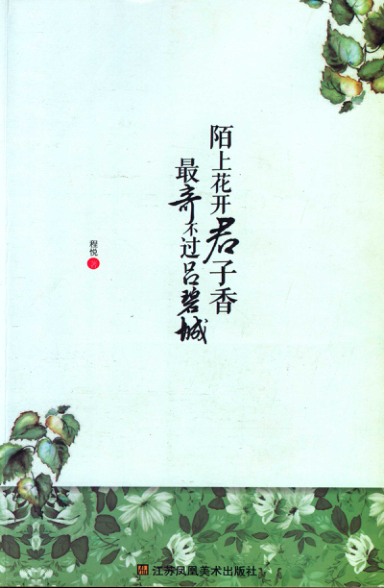 陌上花开君子香
最奇不过吕碧城
程悦 著
江苏凤凰美术出版社